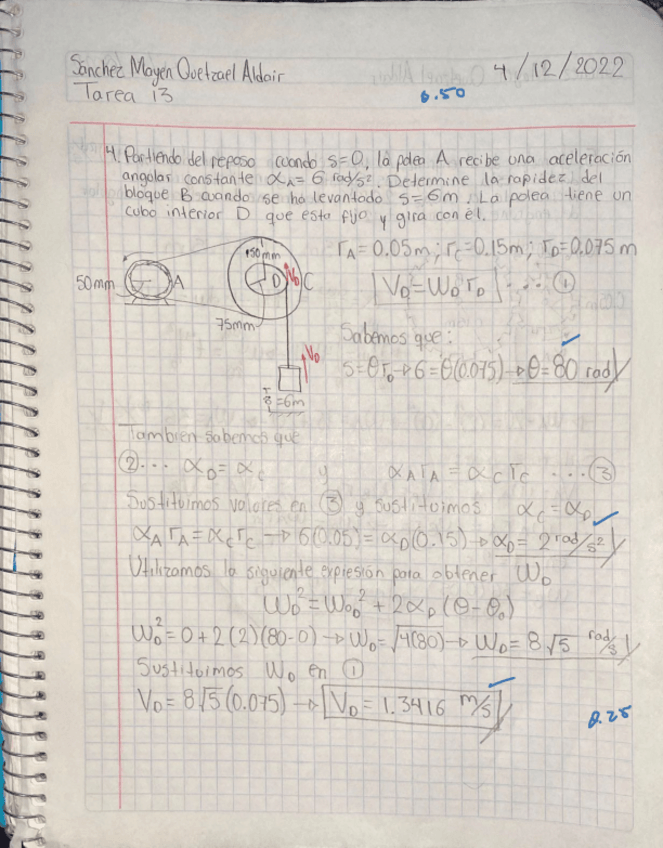 Sánchez Mayen Quetzael Aldair 4/12/2022
Tarea 13 0.50
4. Partiendo del reposo cuando s=0, la polea A recibe una aceleración
angular constante α_A = 6 rad/s². Determine la rapidez del
bloque B cuando se ha levantado s=6m. La polea tiene un
cubo interior D que esta fijo y gira con él.
r_A = 0.05m; r_C = 0.15m; r_D = 0.075 m
150mm
50mm A D V_D C
V_D = W_D r_D ... ①
75mm
Sabemos que:
V_D
s = θ r_D → 6 = θ(0.075) → θ = 80 rad
=6m
Tambien sabemos que
② ... α_D = α_C y α_A r_A = α_C r_C ... ③
Sustituimos valores en ③ y sustituimos α_C = α_D
α_A r_A = α_C r_C → 6(0.05) = α_D(0.15) → α_D = 2 rad/s²
Utilizamos la siguiente expresión para obtener W_D
W_D² = W_D0² + 2α_D (θ - θ_0)
W_D² = 0 + 2(2)(80-0) → W_D = √4(80) → W_D = 8√5 rad/s
Sustituimos W_D en ①
V_D = 8√5(0.075) → V_D = 1.3416 m/s
0.25